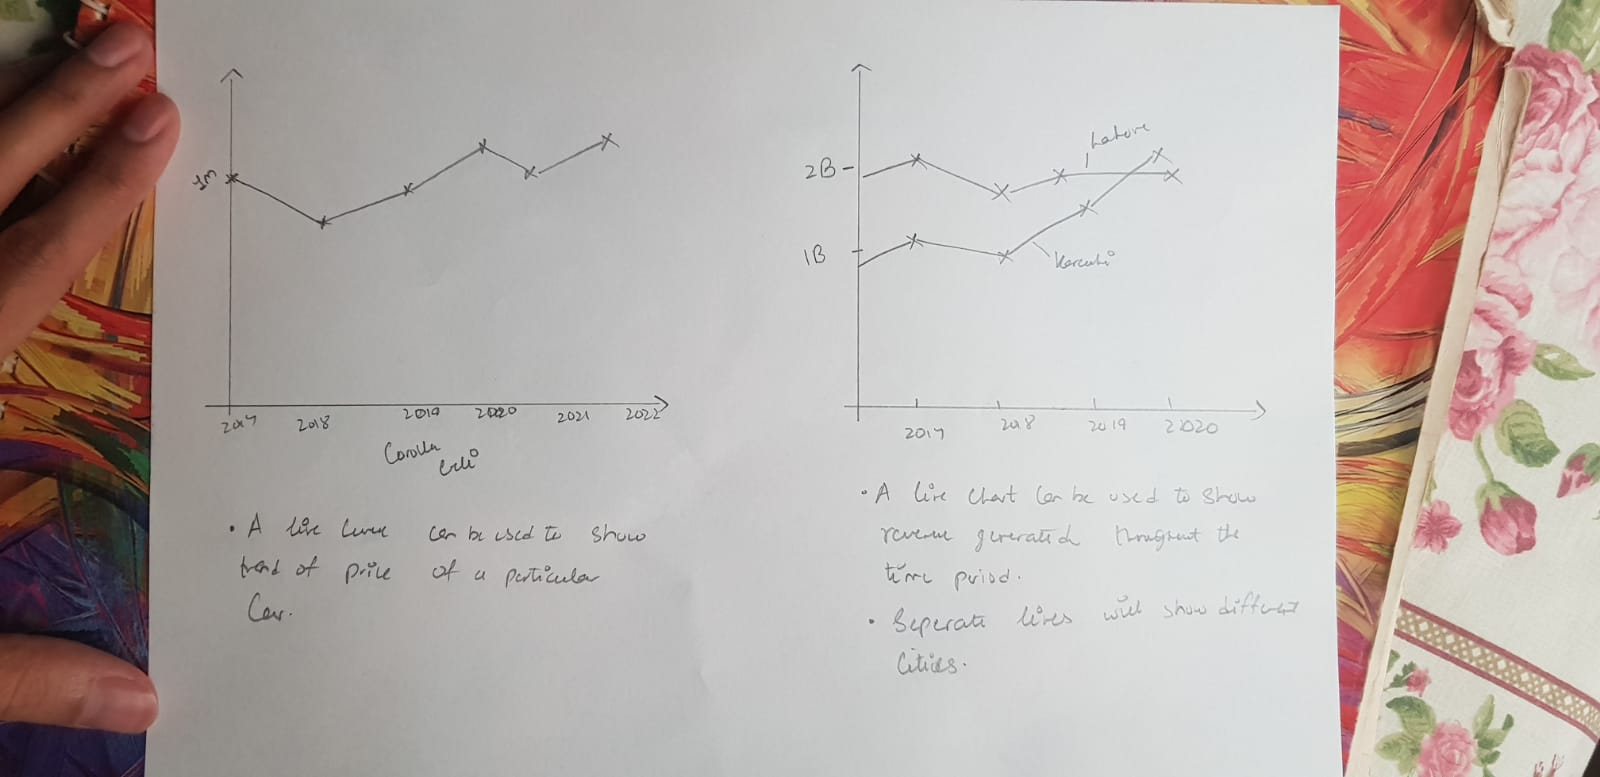 1M
2017 2018 2019 2020 2021 2022
Corolla
• A line curve can be used to show
trend of price of a particular
Car.
2B
1B
Lahore
Karachi
2017 2018 2019 2020
• A line chart can be used to show
revenue generated throughout the
time period.
• Seperate lines will show different
Cities.